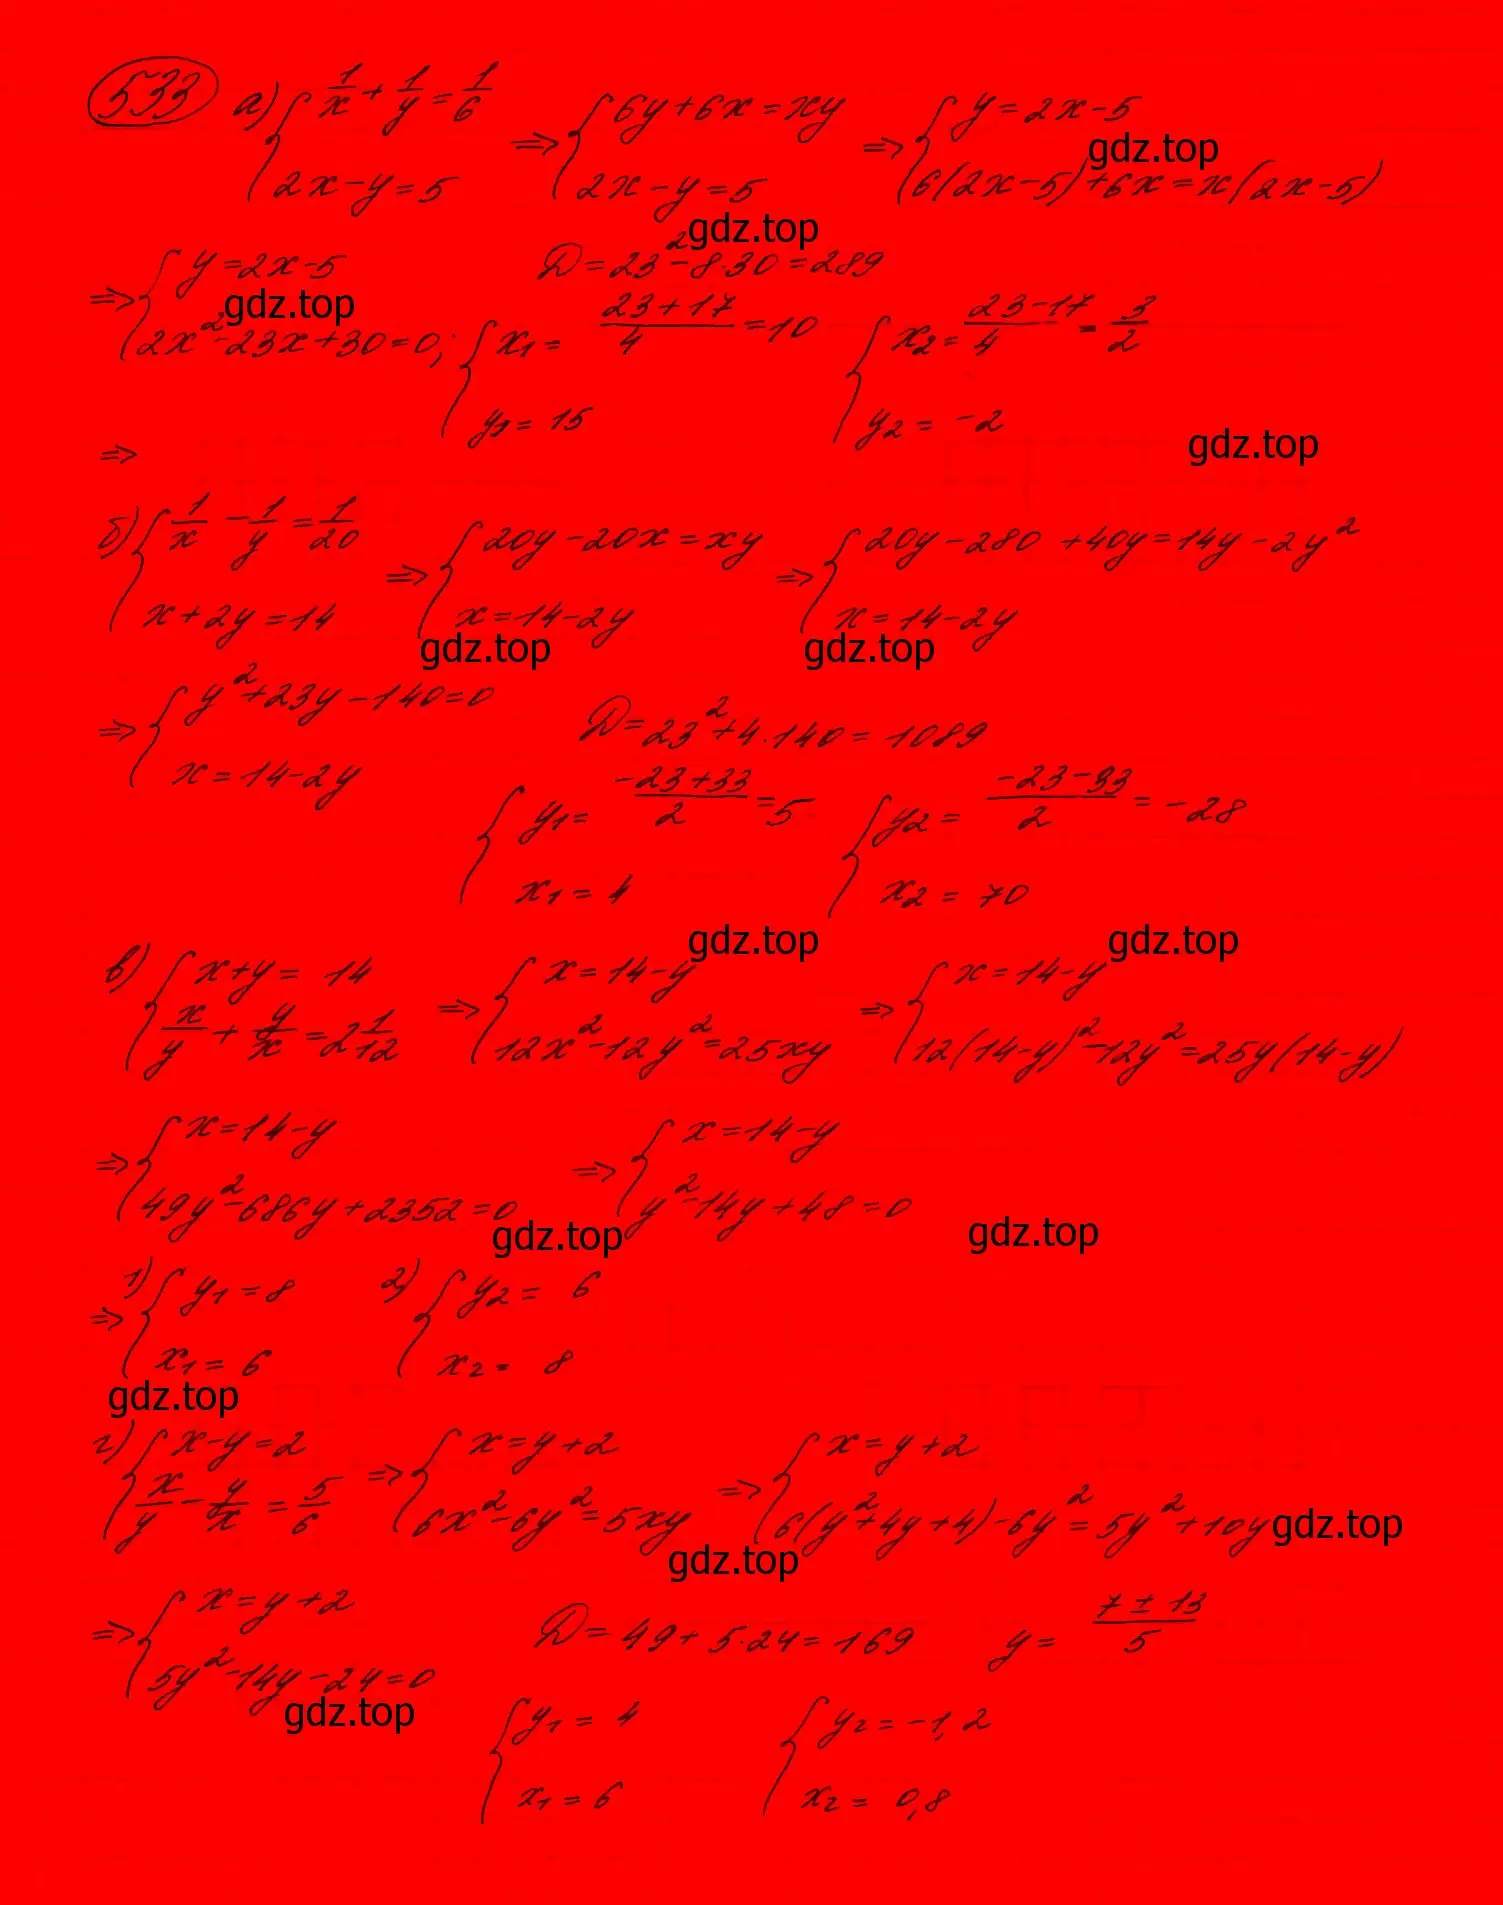 533 а) { 1/x + 1/y = 1/6 ; 2x - y = 5 ⇒ { 6y + 6x = xy ; 2x - y = 5 ⇒ { y = 2x - 5 ; 6(2x - 5) + 6x = x(2x - 5)
gdz.top
gdz.top
⇒ { y = 2x - 5 ; 2x² - 23x + 30 = 0; D = 23² - 8·30 = 289
gdz.top
{ x₁ = (23 + 17)/4 = 10 ; y₁ = 15 { x₂ = (23 - 17)/4 = 3/2 ; y₂ = -2
gdz.top
⇒
б) { 1/x - 1/y = 1/20 ; x + 2y = 14 ⇒ { 20y - 20x = xy ; x = 14 - 2y ⇒ { 20y - 280 + 40y = 14y - 2y² ; x = 14 - 2y
gdz.top gdz.top
⇒ { y² + 23y - 140 = 0 ; x = 14 - 2y D = 23² + 4·140 = 1089
{ y₁ = (-23 + 33)/2 = 5 ; x₁ = 4 { y₂ = (-23 - 33)/2 = -28 ; x₂ = 70
gdz.top gdz.top
в) { x + y = 14 ; x/y + y/x = 2 1/12 ⇒ { x = 14 - y ; 12x² - 12y² = 25xy ⇒ { x = 14 - y ; 12(14 - y)² - 12y² = 25y(14 - y)
⇒ { x = 14 - y ; 49y² - 686y + 2352 = 0 ⇒ { x = 14 - y ; y² - 14y + 48 = 0
gdz.top gdz.top
⇒ 1) { y₁ = 8 ; x₁ = 6 2) { y₂ = 6 ; x₂ = 8
gdz.top
г) { x - y = 2 ; x/y - y/x = 5/6 ⇒ { x = y + 2 ; 6x² - 6y² = 5xy ⇒ { x = y + 2 ; 6(y² + 4y + 4) - 6y² = 5y² + 10y
gdz.top gdz.top
⇒ { x = y + 2 ; 5y² - 14y - 24 = 0 D = 49 + 5·24 = 169 y = (7 ± 13)/5
gdz.top
{ y₁ = 4 ; x₁ = 6 { y₂ = -1,2 ; x₂ = 0,8